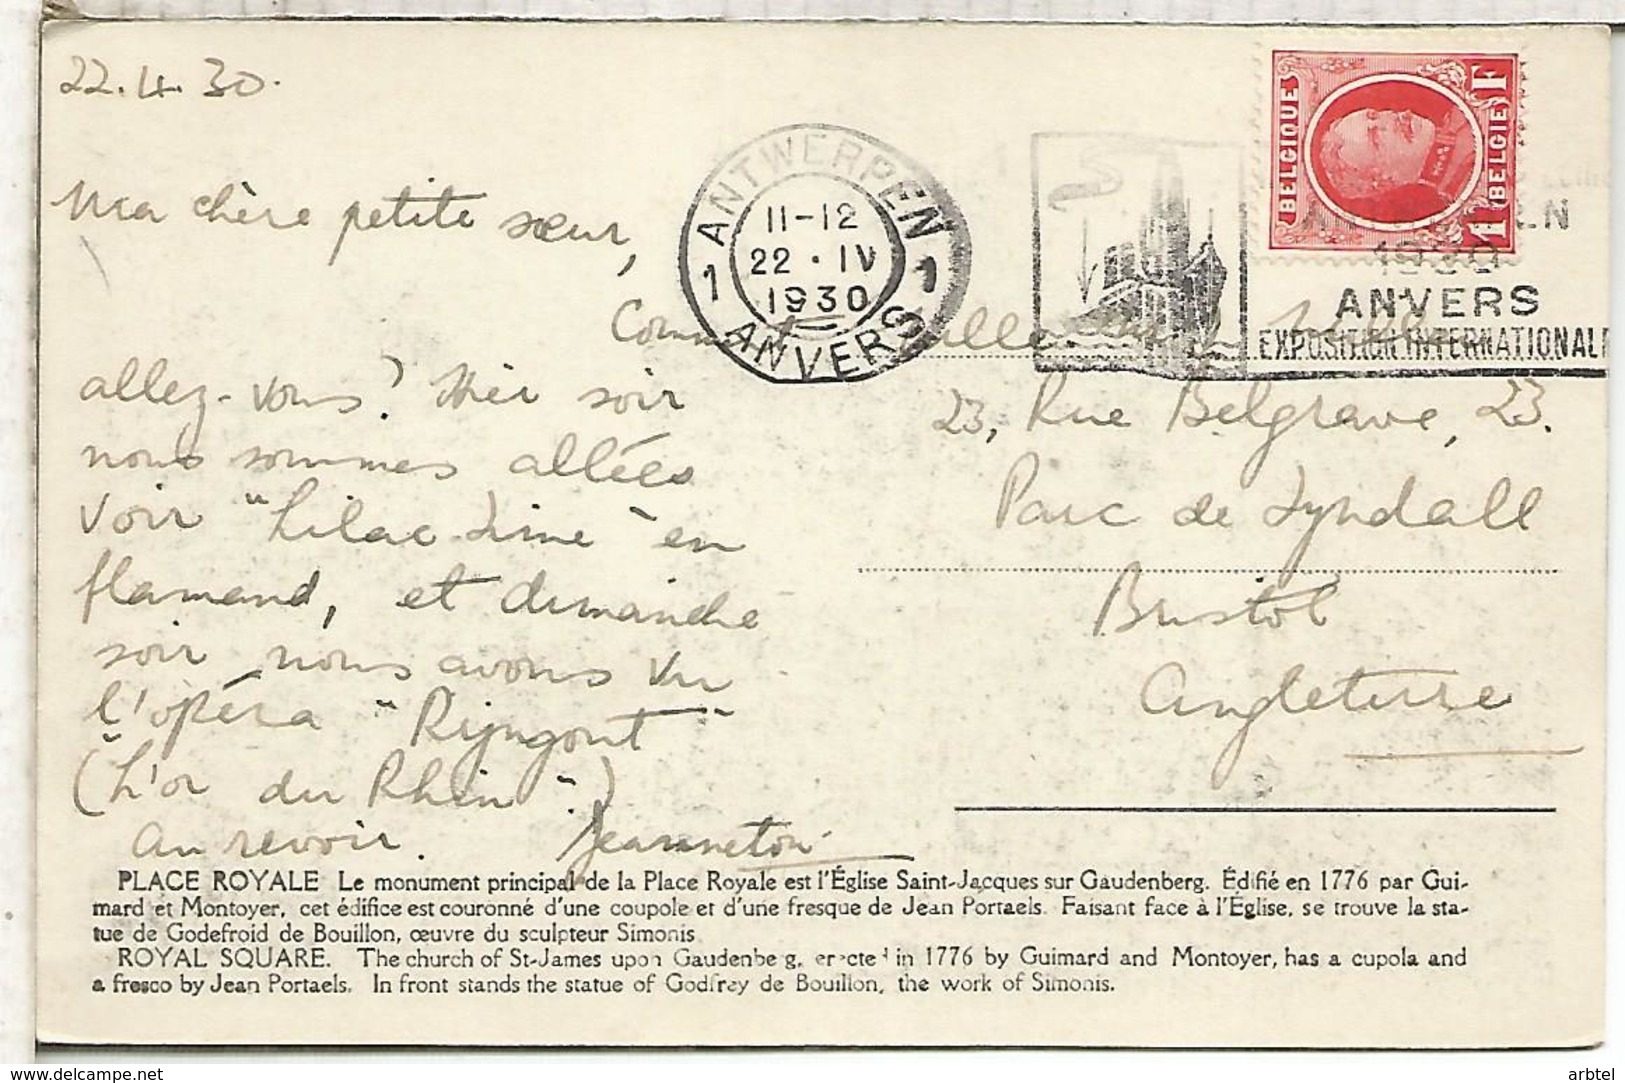 22.4.30.
Ma chère petite sœur,
Comment
allez-vous? Hier soir
nous sommes allées
voir "Lilac Time" en
flamand, et dimanche
soir nous avons vu
l'opéra "Rijngout"
("L'or du Rhin".)
Au revoir. Jeanneton
ANTWERPEN
11-12
22 · IV
1930
1 ANVERS 1
BELGIQUE
1 BELGIE F
1930
ANVERS
EXPOSITION INTERNATIONALE
23, Rue Belgrave, 23.
Parc de Tyndall
Bristol
Angleterre
PLACE ROYALE Le monument principal de la Place Royale est l'Église Saint-Jacques sur Gaudenberg. Édifié en 1776 par Gui-
mard et Montoyer, cet édifice est couronné d'une coupole et d'une fresque de Jean Portaels. Faisant face à l'Église, se trouve la sta-
tue de Godefroid de Bouillon, œuvre du sculpteur Simonis
ROYAL SQUARE. The church of St-James upon Gaudenberg, erected in 1776 by Guimard and Montoyer, has a cupola and
a fresco by Jean Portaels. In front stands the statue of Godfrey de Bouillon, the work of Simonis.
delcampe.net
arbtel